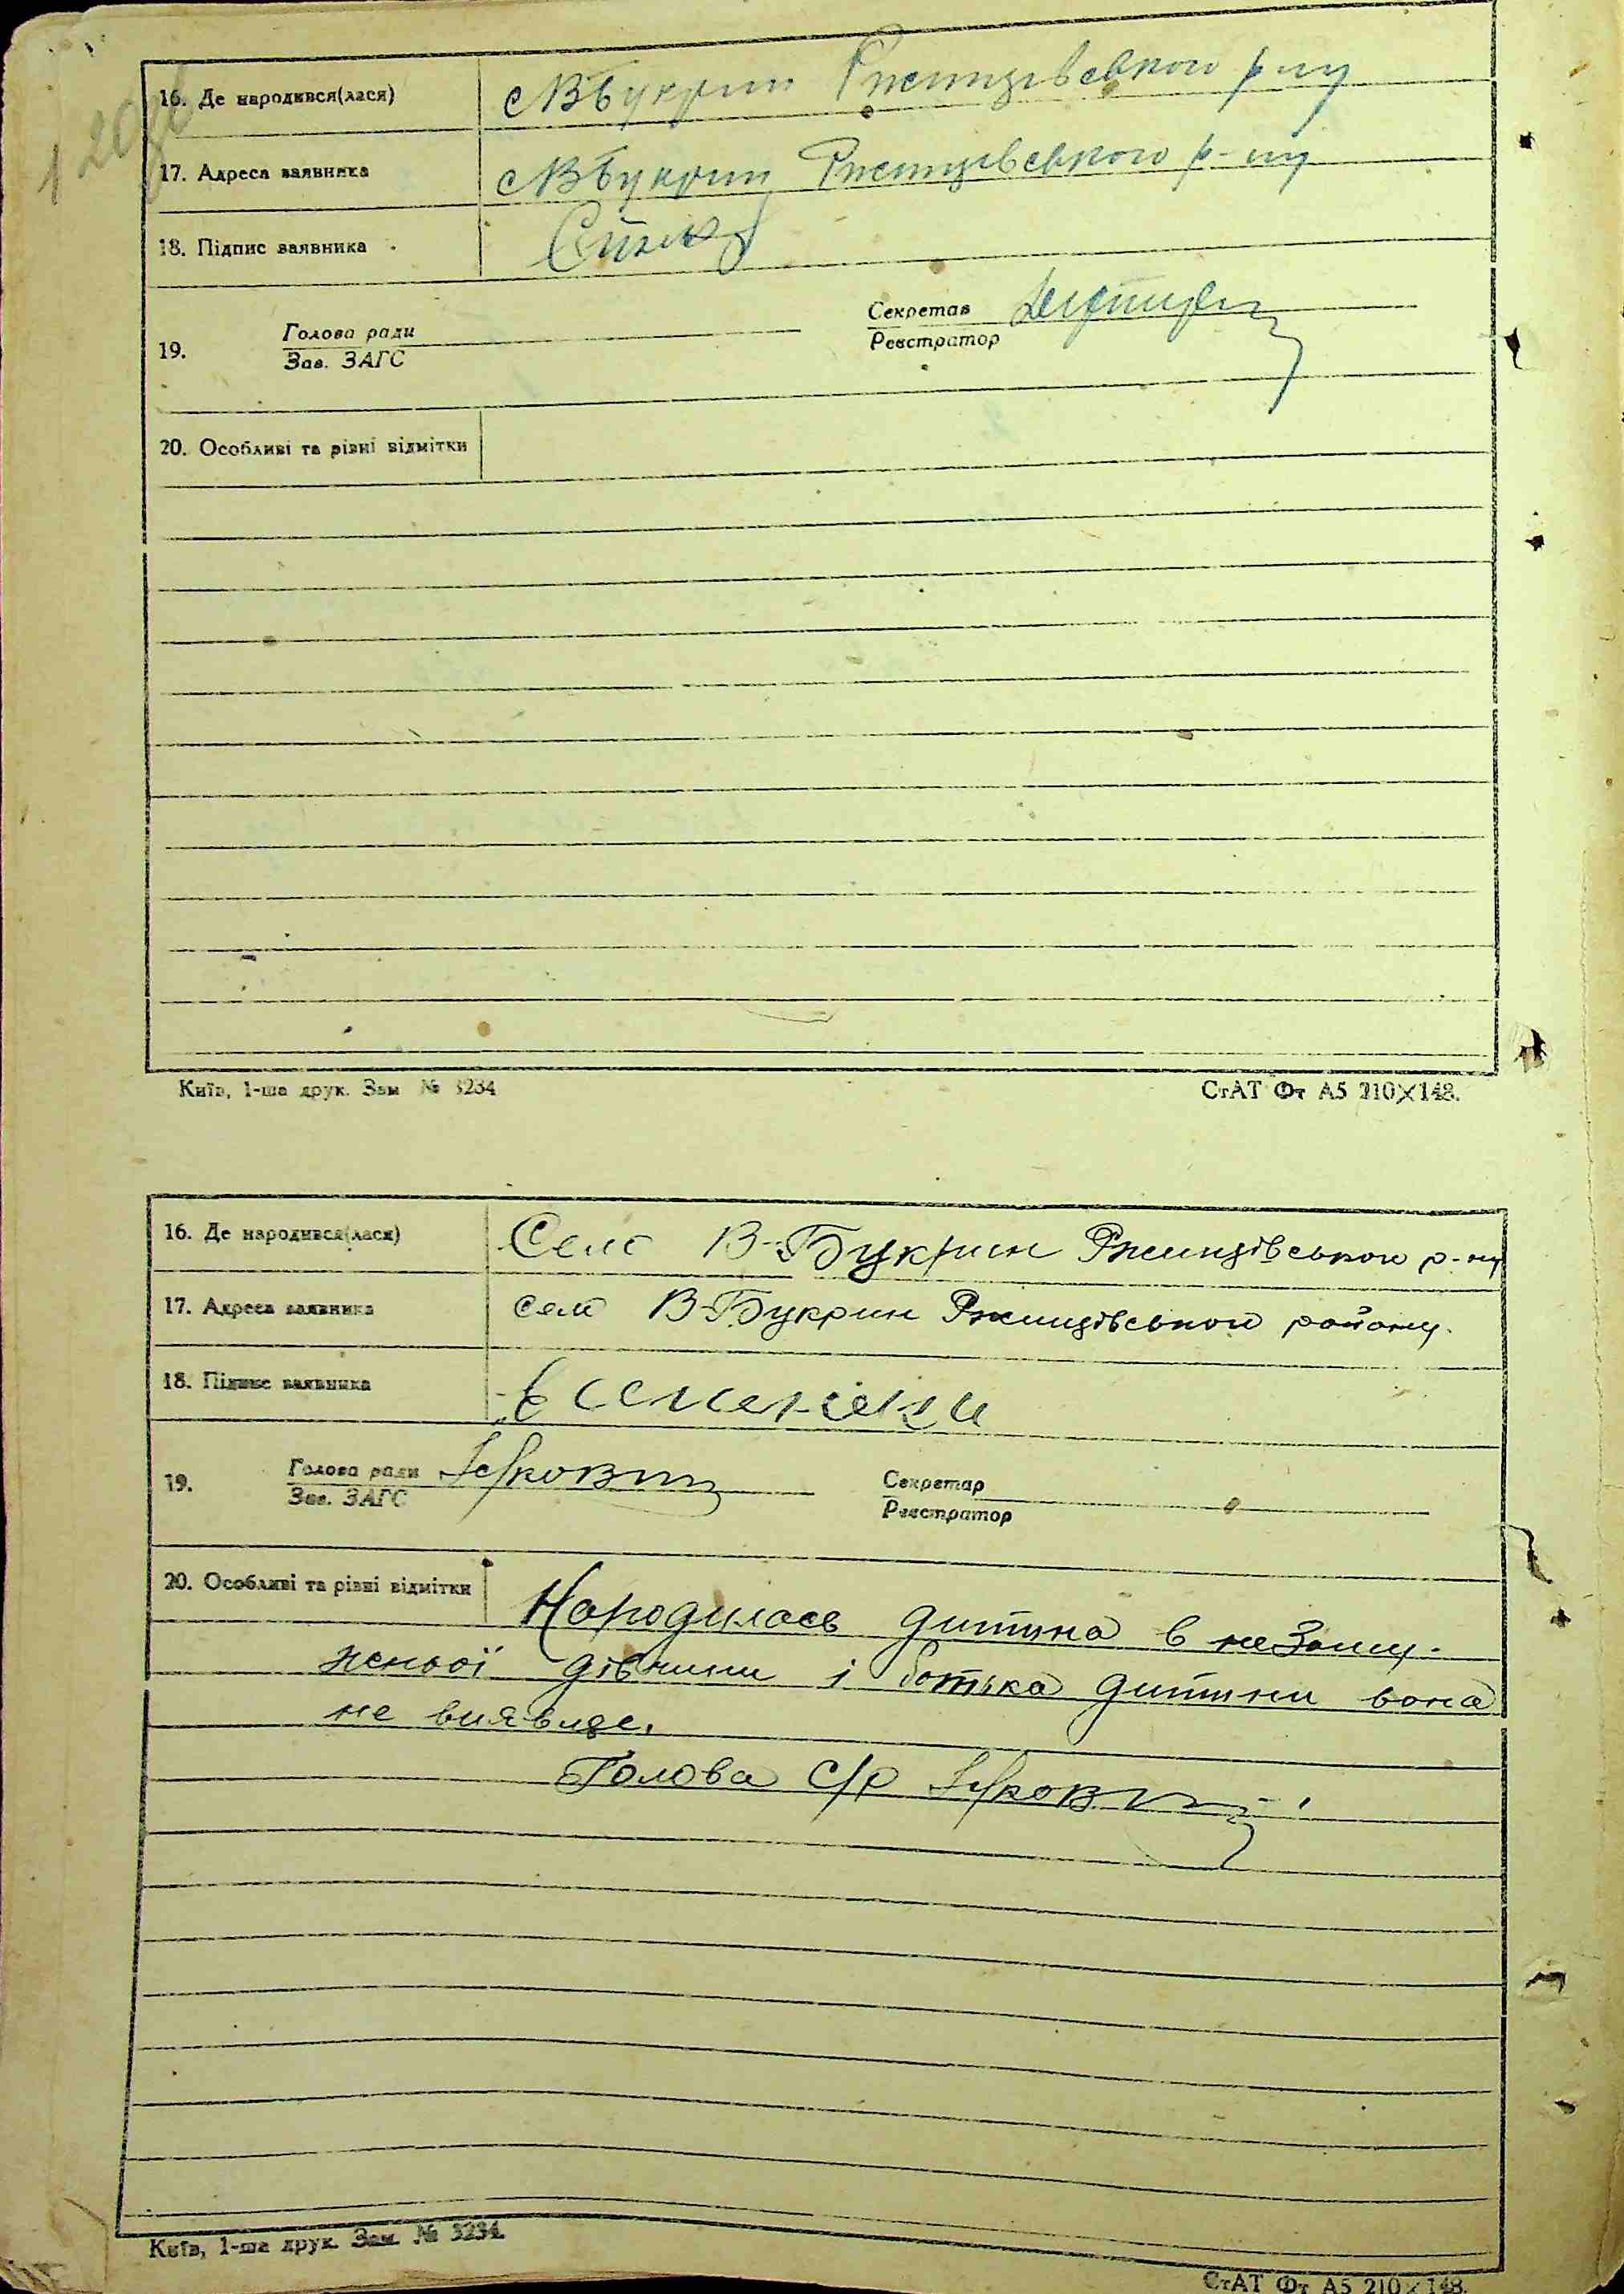 120зв
16. Де народився(лася) с В Букрин Ржищівського р-ну
17. Адреса заявника с В Букрин Ржищівського р-ну
18. Підпис заявника
19. Голова ради Секретар
Зав. ЗАГС Реєстратор
20. Особливі та різні відмітки
Київ, 1-ша друк. Зам № 3234 СтАТ Фт А5 210×148.
16. Де народився(лася) Село В-Букрин Ржищівського р-ну
17. Адреса заявника село В-Букрин Ржищівського району.
18. Підпис заявника
19. Голова ради Секретар
Зав. ЗАГС Реєстратор
20. Особливі та різні відмітки Народилась дитина в незаму-
женьої дівчини і батька дитини вона
не виявляє.
Голова с/р
Київ, 1-ша друк. Зам. № 3234.
СтАТ Фт А5 210×148.